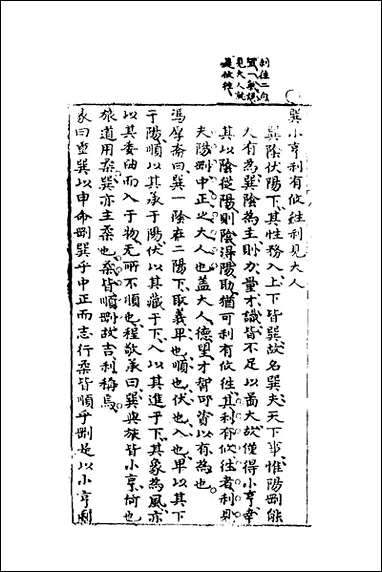 利往二句
見大人就
是攸往
巽小亨利有攸往利見大人
巽陰伏陽下其性務入上下皆巽故名巽夫天下事惟陽剛能
人有為巽陰為主則力量才識皆不足以當大故僅得小亨幸
其以陰從陽則陰得陽助猶可利有攸往其利有攸往者利見
夫陽剛中正之大人也蓋大人德望才智可資以有為也
馮厚齋曰巽一陰在二陽下取義卑也順也伏也入也卑以其下
于陽順以其承于陽伏以其藏于下入以其進于下其象為風亦
以其委曲而入于物无所不順也程敬承曰巽與旅皆小亨何也
旅道用柔巽亦主柔也柔皆順剛故吉利稱焉
彖曰重巽以申命剛巽乎中正而志行柔皆順乎剛是以小亨利